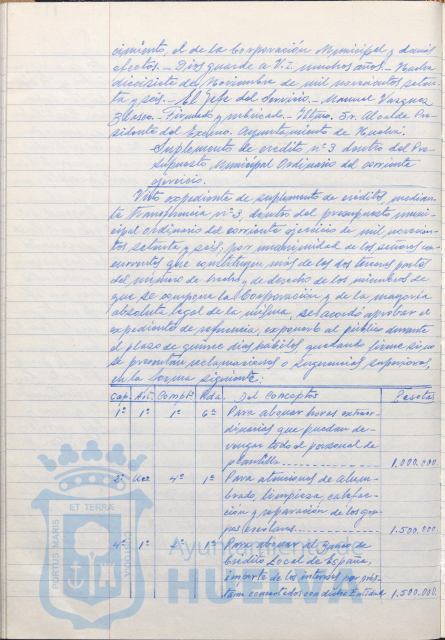 cimiento, el de la Corporación Municipal y demás
efectos.- Dios guarde a V.I. muchos años.- Huelva
diecisiete de Noviembre de mil novecientos seten-
ta y seis.- El Jefe del Servicio.- Manuel Vazquez
Firmado y rubricado.- Iltmo. Sr. Alcalde Pre-
sidente del Excmo. Ayuntamiento de Huelva.
Suplemento de crédito nº 3 dentro del Pre-
supuesto Municipal Ordinario del corriente
ejercicio.
Visto expediente de suplemento de créditos, median-
te transferencia nº 3, dentro del presupuesto muni-
cipal ordinario del corriente ejercicio de mil novecien-
tos setenta y seis, por unanimidad de los señores con-
currentes que constituyen más de las dos terceras partes
del número de hecho y de derecho de los miembros de
que se compone la Corporación y de la mayoría
absoluta legal de la misma, se acordó aprobar el
expediente de referencia, exponerlo al público durante
el plazo de quince días hábiles quedando firme si no
se presentan reclamaciones o sugerencias superiores,
en la forma siguiente:
Cap. Art. Comptº Pda. Del Conceptos Pesetas
1º 1º 1º 6º Para abonar horas extraor-
dinarias que puedan de-
vengar todo el personal de
plantilla 1.000.000.
2º Uco 4º 1º Para atenciones de alum-
brado, limpieza, calefac-
ción y reparación de los gru-
pos escolares 1.500.000.
4º 1º 2º 1º Para abonar al Banco de
Crédito Local de España,
importe de los intereses por prés-
tamos concertados con dicha Entidad 1.500.000.
PORTUS MARIS ET TERRAE CUSTODIA
Ayuntamiento de
HUELVA